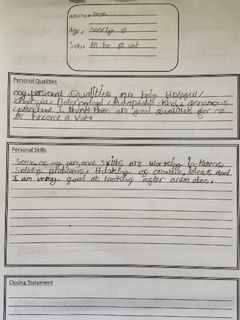 Name:
Age:
Job: to be a vet
Personal Qualities
my personal Qualities are being Helpful,
Determined, Adaptable, Kind, generous
I think these are good qualities for me
to become a vet.
Personal Skills
Some of my personal skills are working in teams,
Solving problems, thinking of creative ideas and
I am very good at looking after animales.
Closing Statement